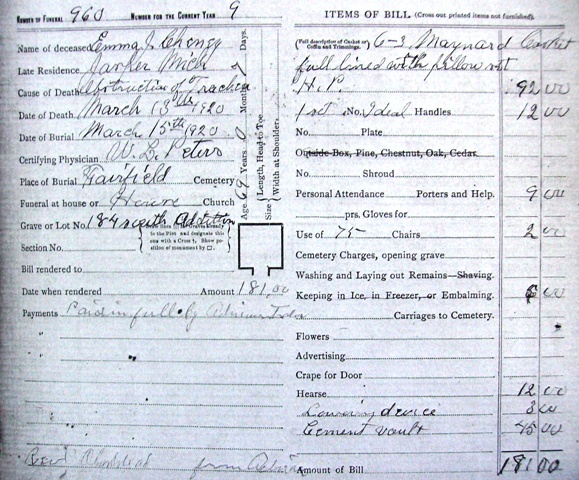 NUMBER OF FUNERAL 960 NUMBER FOR THE CURRENT YEAR 9
Name of deceased Emma J. Cheney
Late Residence Jasper Mich
Cause of Death Obstruction of Trachea
Date of Death March 13th 1920
Date of Burial March 15th 1920
Certifying Physician W. L. Peters
Place of Burial Fairfield Cemetery
Funeral at house or House Church
Grave or Lot No. 184 south Addition
Section No.
Bill rendered to
Date when rendered Amount 181.00
Payments Paid in full by
"
"
"
from
Age 69 Years 0 Months Days.
Size Length, Head to Toe
Width at Shoulder.
ITEMS OF BILL. (Cross out printed items not furnished).
(Full description of Casket or Coffin and Trimmings. 6-3 Maynard Casket
full lined with pillow
H.P. 92 00
1 set No. Ideal Handles 12 00
No. Plate
Outside Box, Pine, Chestnut, Oak, Cedar.
No. Shroud
Personal Attendance Porters and Help. 9 00
prs. Gloves for
Use of 75 Chairs 2 00
Cemetery Charges, opening grave
Washing and Laying out Remains—Shaving.
Keeping in Ice, in Freezer, or Embalming. 6 00
Carriages to Cemetery.
Flowers
Advertising
Crape for Door
Hearse 12 00
Lowering device 3 00
Cement vault 45 00
Amount of Bill 181 00